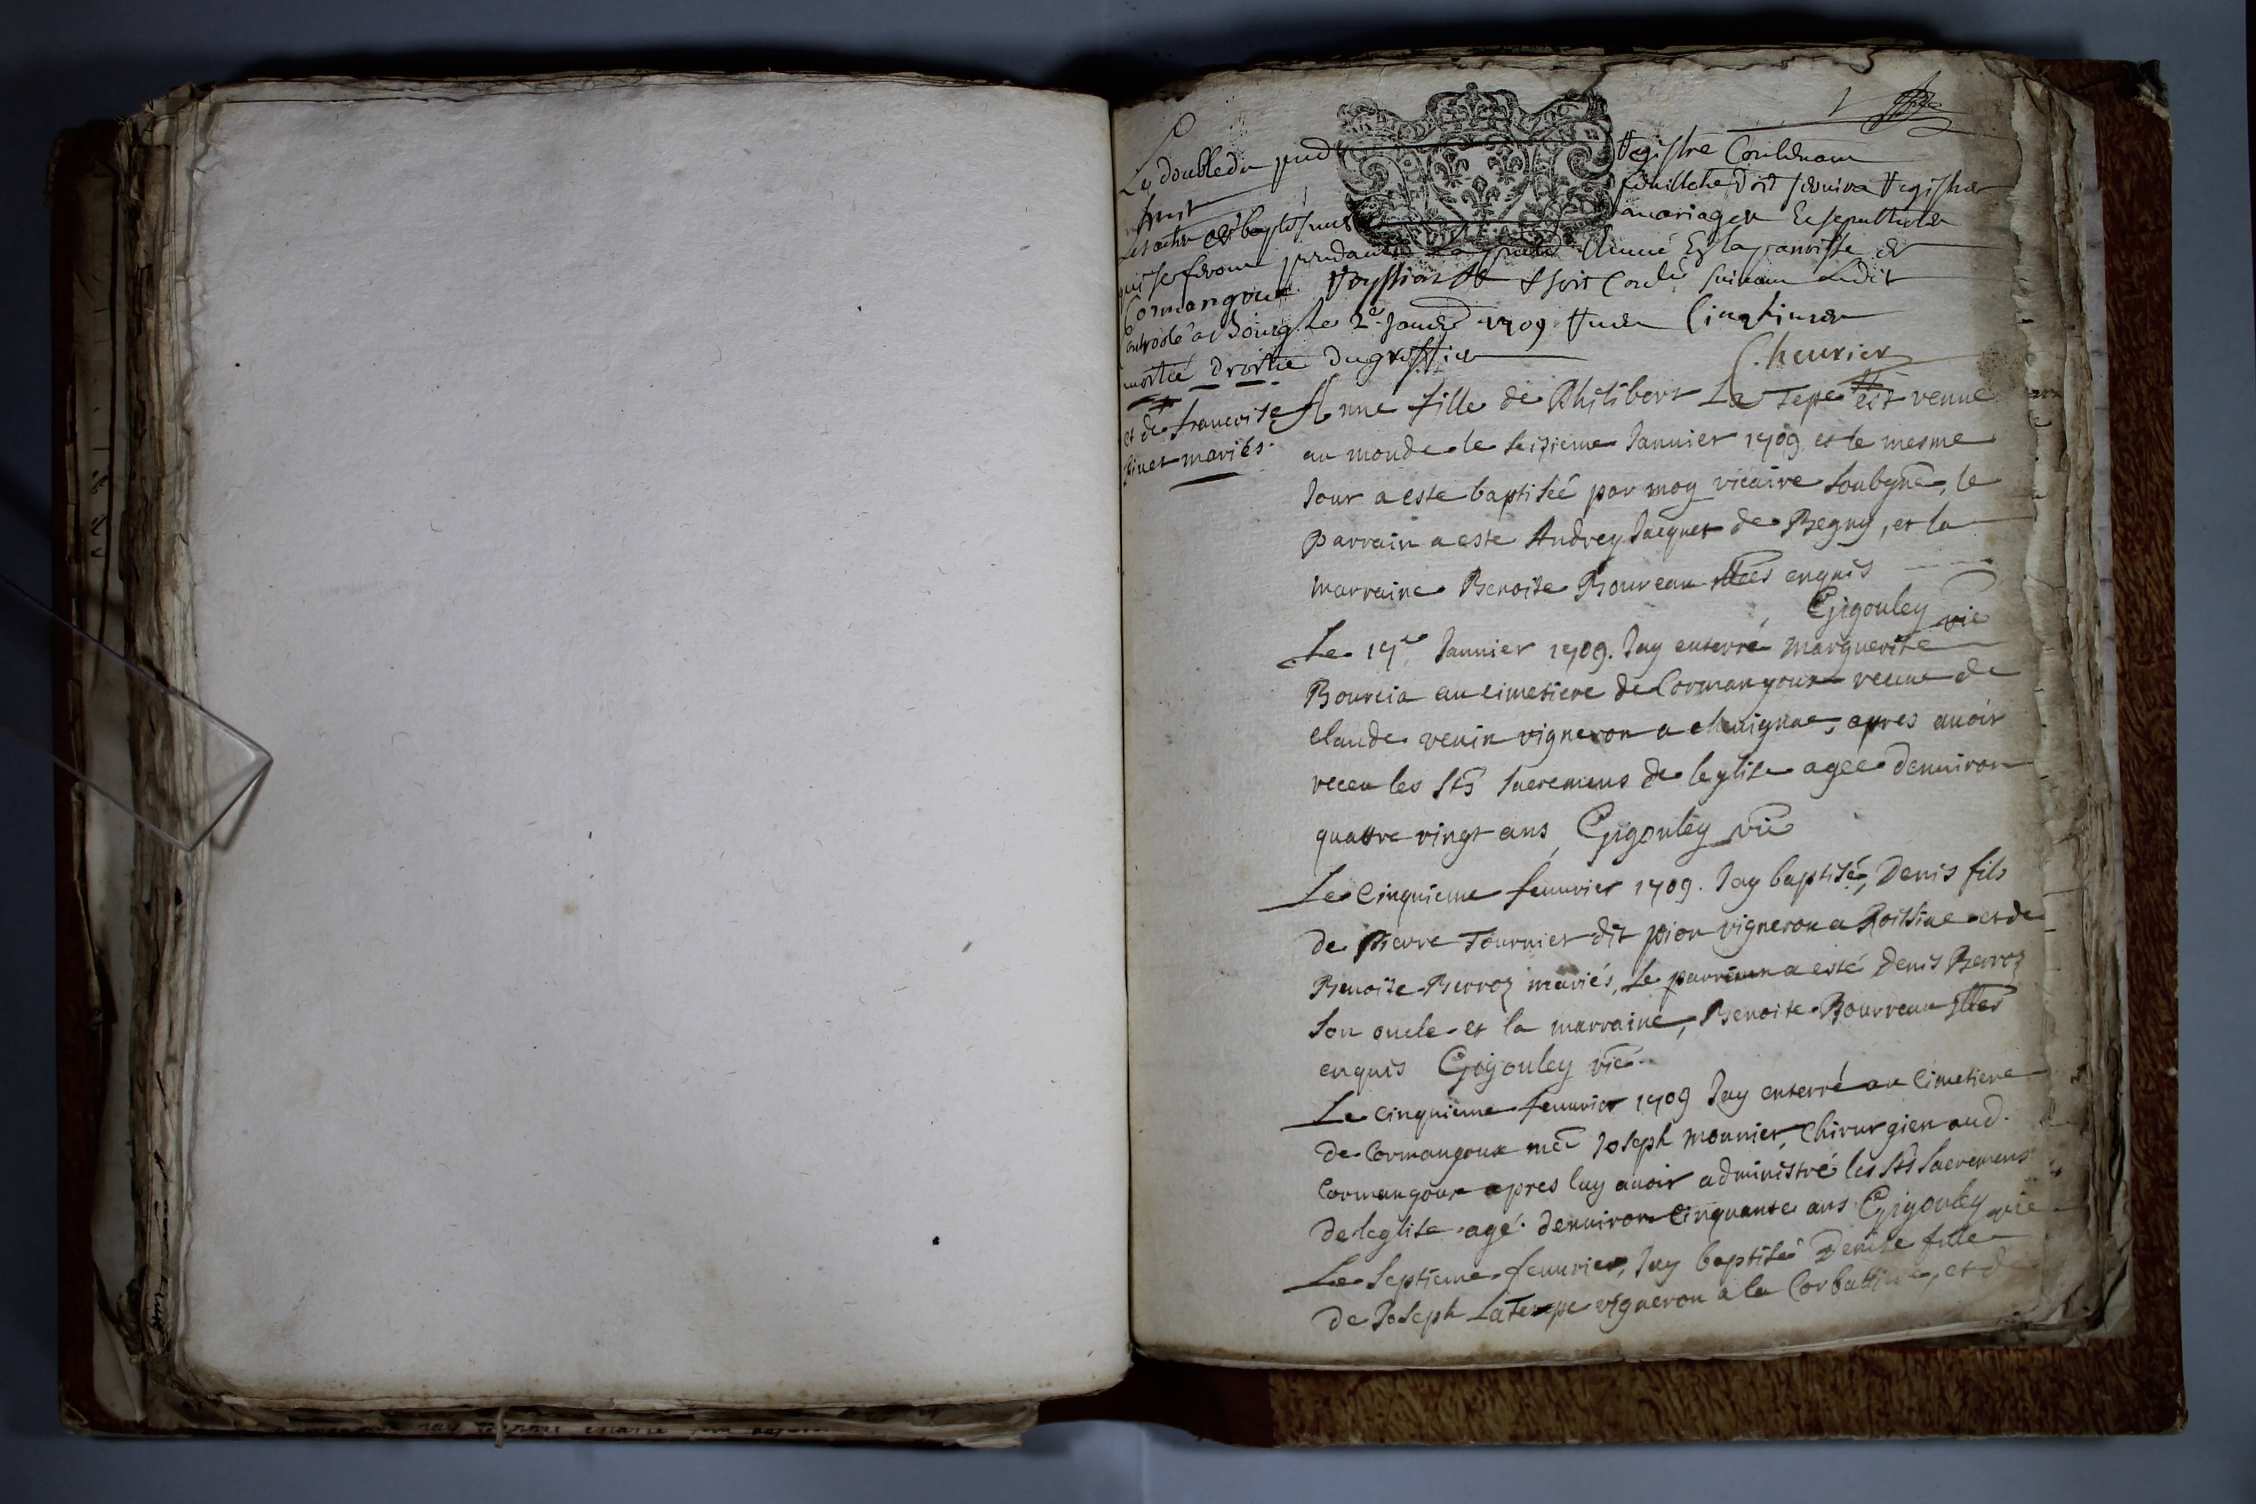 Le double du pnt Registre Contenant
huit feuillets doit servir a Registrer
les actes de baptesmes mariages et sepultures
qui se feront pendant la pnte Année En la parroisse de
Cormangoux Reyssiat &c soit Coulé suivant Ledit
controolé a Bourg le 2e Janer 1709
moitié droitte du greffier
Cheurier
et de francoise
pinet mariés.
Anne fille de Philibert La Tepe est venue
au monde le seizieme Januier 1709 et le mesme
Jour a este baptisée par moy vicaire soubsgné, le
parrain a este Andrey Jacquet de Begny, et la
marraine Benoite Boureau illes enquis
Gigouley vic
Le 17e Januier 1709. Jay enterré Marguerite
Bourcia au cimetiere de Cormangoux veuue de
claude venin vigneron a cheuignac, apres auoir
receu les Sts Sacremens de leglise agee denuiron
quattre vingt ans, Gigouley vic
Le Cinquieme feuurier 1709. Jay baptisé, Denis fils
de Pierre Tournier dit pion vigneron a Roissiac et de
Benoite Berroz mariés, Le parrain a esté Denis Berroz
son oncle et la marraine, Benoite Bourreau illes
enquis Gigouley vic.
Le cinquieme feuurier 1709 Jay enterré au Cimetiere
de Cormangoux me Joseph Monnier, Chirurgien aud.
Cormangoux apres luy auoir administré les Sts Sacremens
de leglise agé denuiron Cinquante ans Gigouley vic
Le Septieme feuurier, Jay baptisé Denise fille
de Joseph LaTeppe vigneron a la Corbattiere, et de